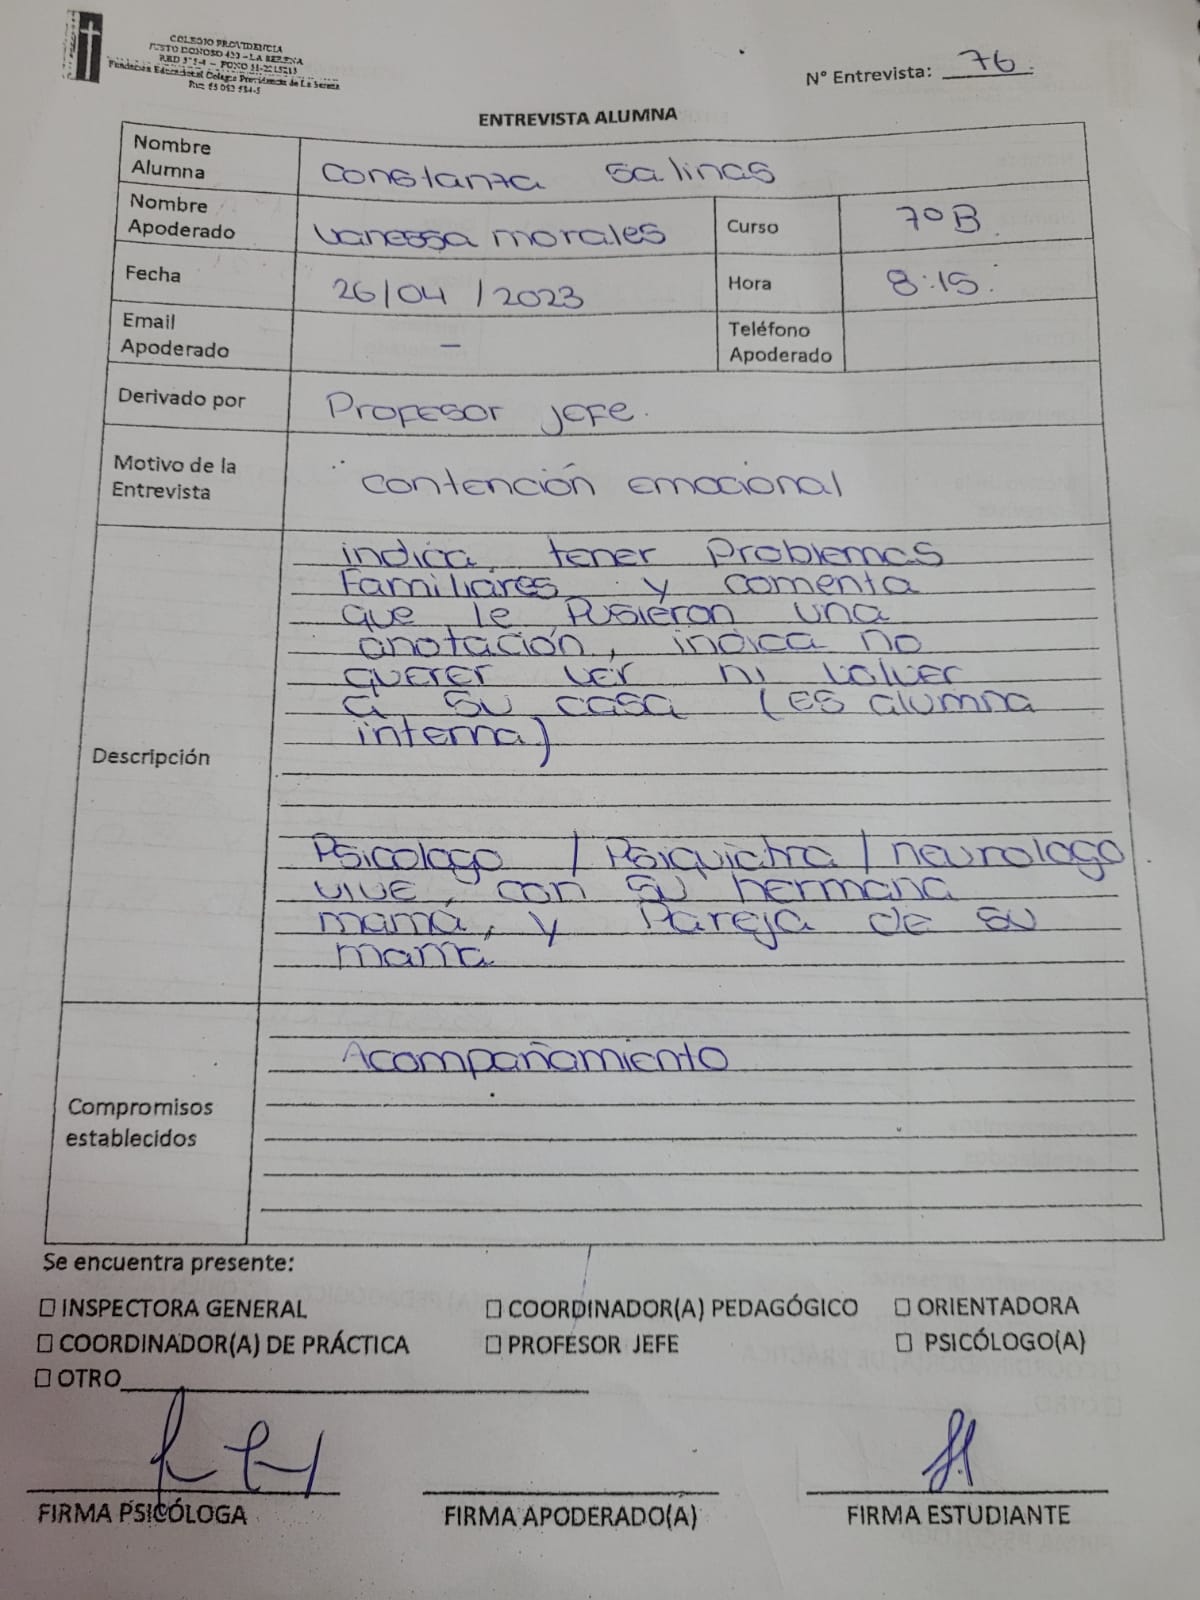 COLEGIO PROVIDENCIA
JUSTO DONOSO 420 - LA SERENA
Fundación Educacional Colegio Providencia de La Serena
N° Entrevista: 76
ENTREVISTA ALUMNA
Nombre Alumna Constanza Salinas
Nombre Apoderado Vanessa Morales Curso 7°B
Fecha 26/04/2023 Hora 8:15.
Email Apoderado - Teléfono Apoderado
Derivado por Profesor Jefe.
Motivo de la Entrevista Contención emocional
Descripción
indica, tener Problemas
Familiares y comenta
que le Pusieron una
anotación, indica no
querer ver ni volver
a su casa (Es alumna
interna)
Psicologo / Psiquiatra / neurologo
vive, con su hermana
mamá, y Pareja de su
mamá
Compromisos establecidos
Acompañamiento
Se encuentra presente:
☐ INSPECTORA GENERAL ☐ COORDINADOR(A) PEDAGÓGICO ☐ ORIENTADORA
☐ COORDINADOR(A) DE PRÁCTICA ☐ PROFESOR JEFE ☐ PSICÓLOGO(A)
☐ OTRO
FIRMA PSICÓLOGA FIRMA APODERADO(A) FIRMA ESTUDIANTE